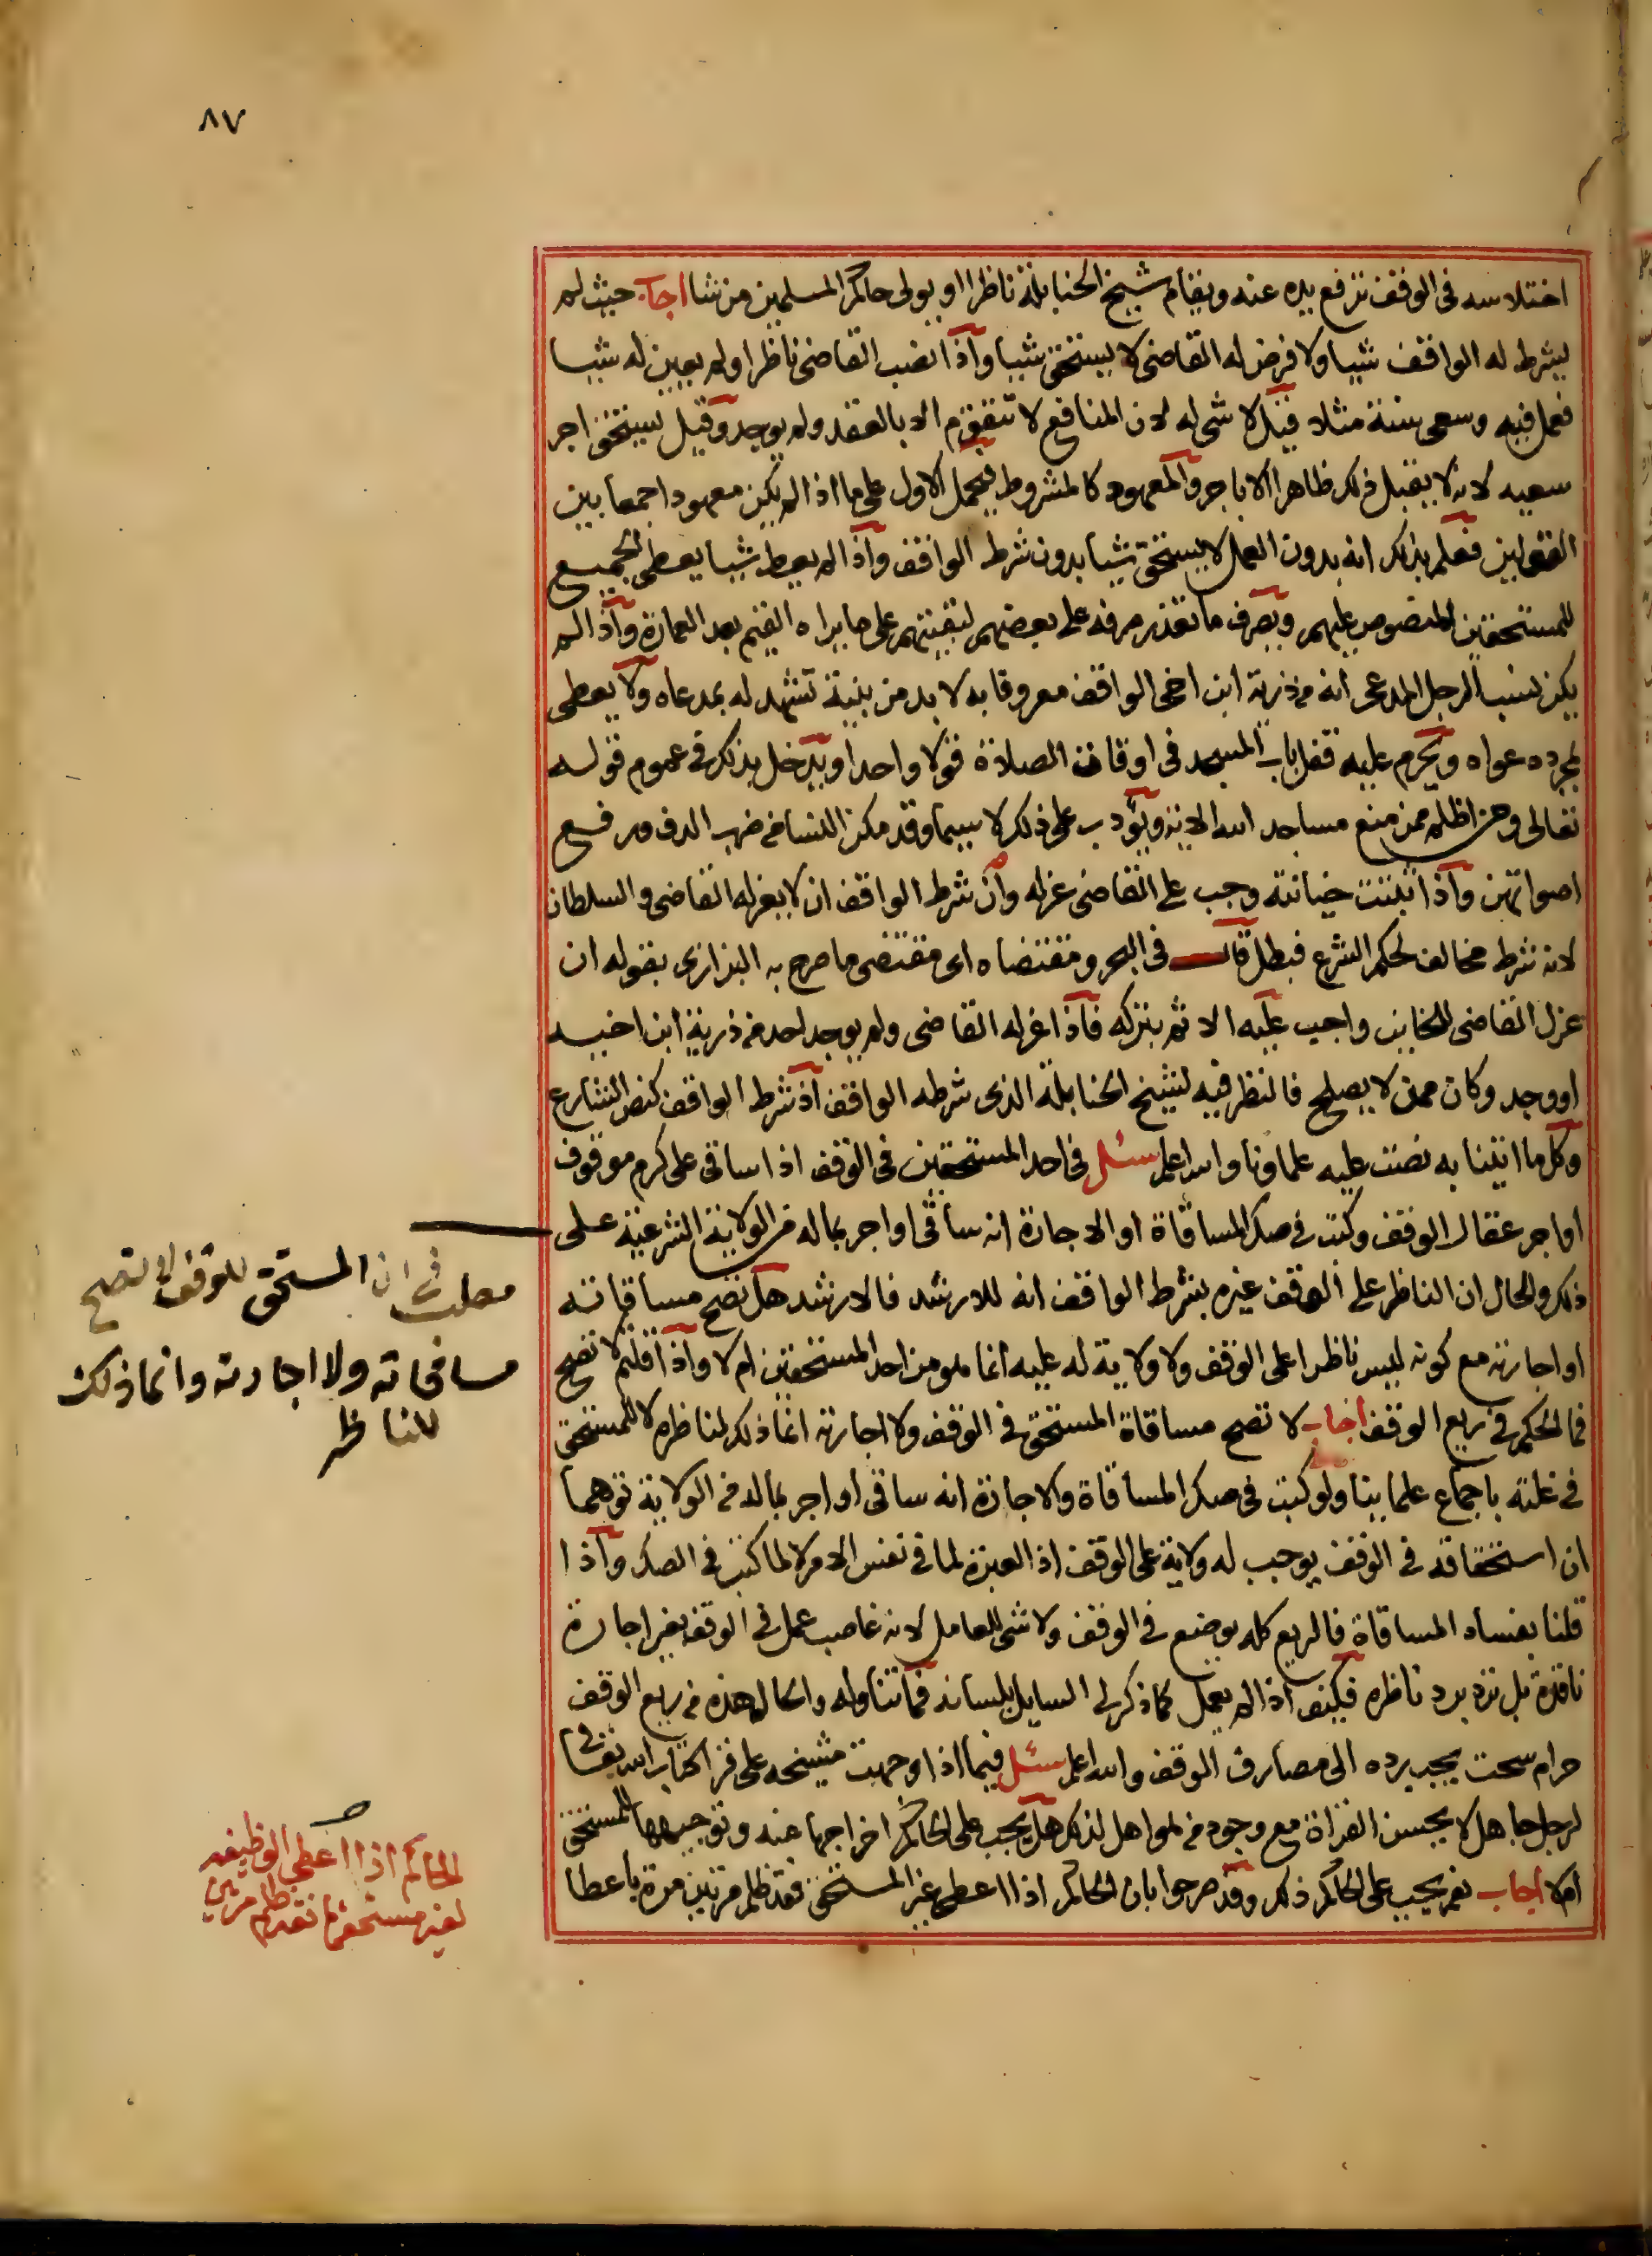 ٨٧
اختلاسه في الوقف ترفع يده عنه ويقام شيخ الحنابلة ناظرا او يولى حاكم المسلمين من شا اجاب حيث لم
يشرط له الواقف شيا ولا فرض له القاضي لا يستحق شيا واذا نصب القاضي ناظرا ولم يعين له شيا
فعمل فيه وسعى سنة مثلا قيل لا شي له لان المنافع لا تتقوم الا بالعقد ولم يوجد وقيل يستحق اجر
سعيه لانه لا يقبل ذلك ظاهرا الا باجر والمعهود كالمشروط فيحمل الاول على ما اذا لم يكن معهودا جمعا بين
القولين فعلم بذلك انه بدون العمل لا يستحق شيا بدون شرط الواقف واذا لم يعط شيا يعطى الجميع
للمستحقين المنصوص عليهم ويصرف ما تعذر صرفه على بعضهم لبقيتهم على ما يراه القيم بعد العمارة واذا لم
يكن نسب الرجل المدعي انه من ذرية ابن اخي الواقف معروفا به لا بد من بينة تشهد له بمدعاه ولا يعطى
بمجرد دعواه ويحرم عليه قفل باب المسجد في اوقات الصلاة قولا واحدا ويدخل بذلك في عموم قوله
تعالى ومن اظلم ممن منع مساجد الله الاية ويؤدب على ذلك لا سيما وقد مكن النسا من ضرب الدف ورفع
اصواتهن واذا ثبتت خيانته وجب على القاضي عزله وان شرط الواقف ان لا يعزله القاضي والسلطان
لانه شرط مخالف لحكم الشرع فبطل قال في البحر ومقتضاه اى مقتضى ما صرح به البزازى بقوله ان
عزل القاضي للخاين واجب عليه الاثم بتركه فاذا عزله القاضي ولم يوجد احد من ذرية ابن اخيه
او وجد وكان ممن لا يصلح فالنظر فيه لشيخ الحنابلة الذى شرطه الواقف اذ شرط الواقف كنص الشارع
وكل ما اتينا به نصت عليه علماونا والله اعلم سئل في احد المستحقين في الوقف اذا ساقى على كرم موقوف
او اجر عقار الوقف وكتب في صك المساقاة او الاجارة انه ساقى او اجر بما له من الولاية الشرعية على
ذلك والحال ان الناظر على الوقف غيره بشرط الواقف انه للارشد فالارشد هل تصح مساقاته
او اجارته مع كونه ليس ناظرا على الوقف ولا ولاية له عليه انما هو من احد المستحقين ام لا واذا قلتم لا تصح
فما الحكم في ريع الوقف اجاب لا تصح مساقاة المستحق في الوقف ولا اجارته انما ذلك لناظره لا للمستحق
في غلته باجماع علماينا ولو كتب في صك المساقاة والاجارة انه ساقى او اجر بما له من الولاية توهما
ان استحقاقه في الوقف يوجب له ولاية على الوقف اذ العبرة لما في نفس الامر لا لما كتب في الصك واذا
قلنا بفساد المساقاة فالريع كله يوضع في الوقف ولا شي للعامل لانه غاصب عمل في الوقف بغير اجارة
نافذة بل ترد برد ناظره فكيف اذا لم يعمل كما ذكر لى السايل بلسانه فما تناوله والحال هذه من ريع الوقف
حرام سحت يجب رده الى مصارف الوقف والله اعلم سئل فيما اذا وجهت مشيخه على قرا كتاب الله تعالى
لرجل جاهل لا يحسن القراة مع وجود من هو اهل لذلك هل يجب على الحاكم اخراجها عنه وتوجيهها للمستحق
ام لا اجاب نعم يجب على الحاكم ذلك وقد صرحوا بان الحاكم اذا اعطى غير المستحق فقد ظلم مرتين مرة باعطا
مطلب في ان المستحق للوقف لا تصح
مساقاته ولا اجارته وانما ذلك
للناظر
الحاكم اذا اعطى الوظيفه
لغير مستحقها فقد ظلم مرتين